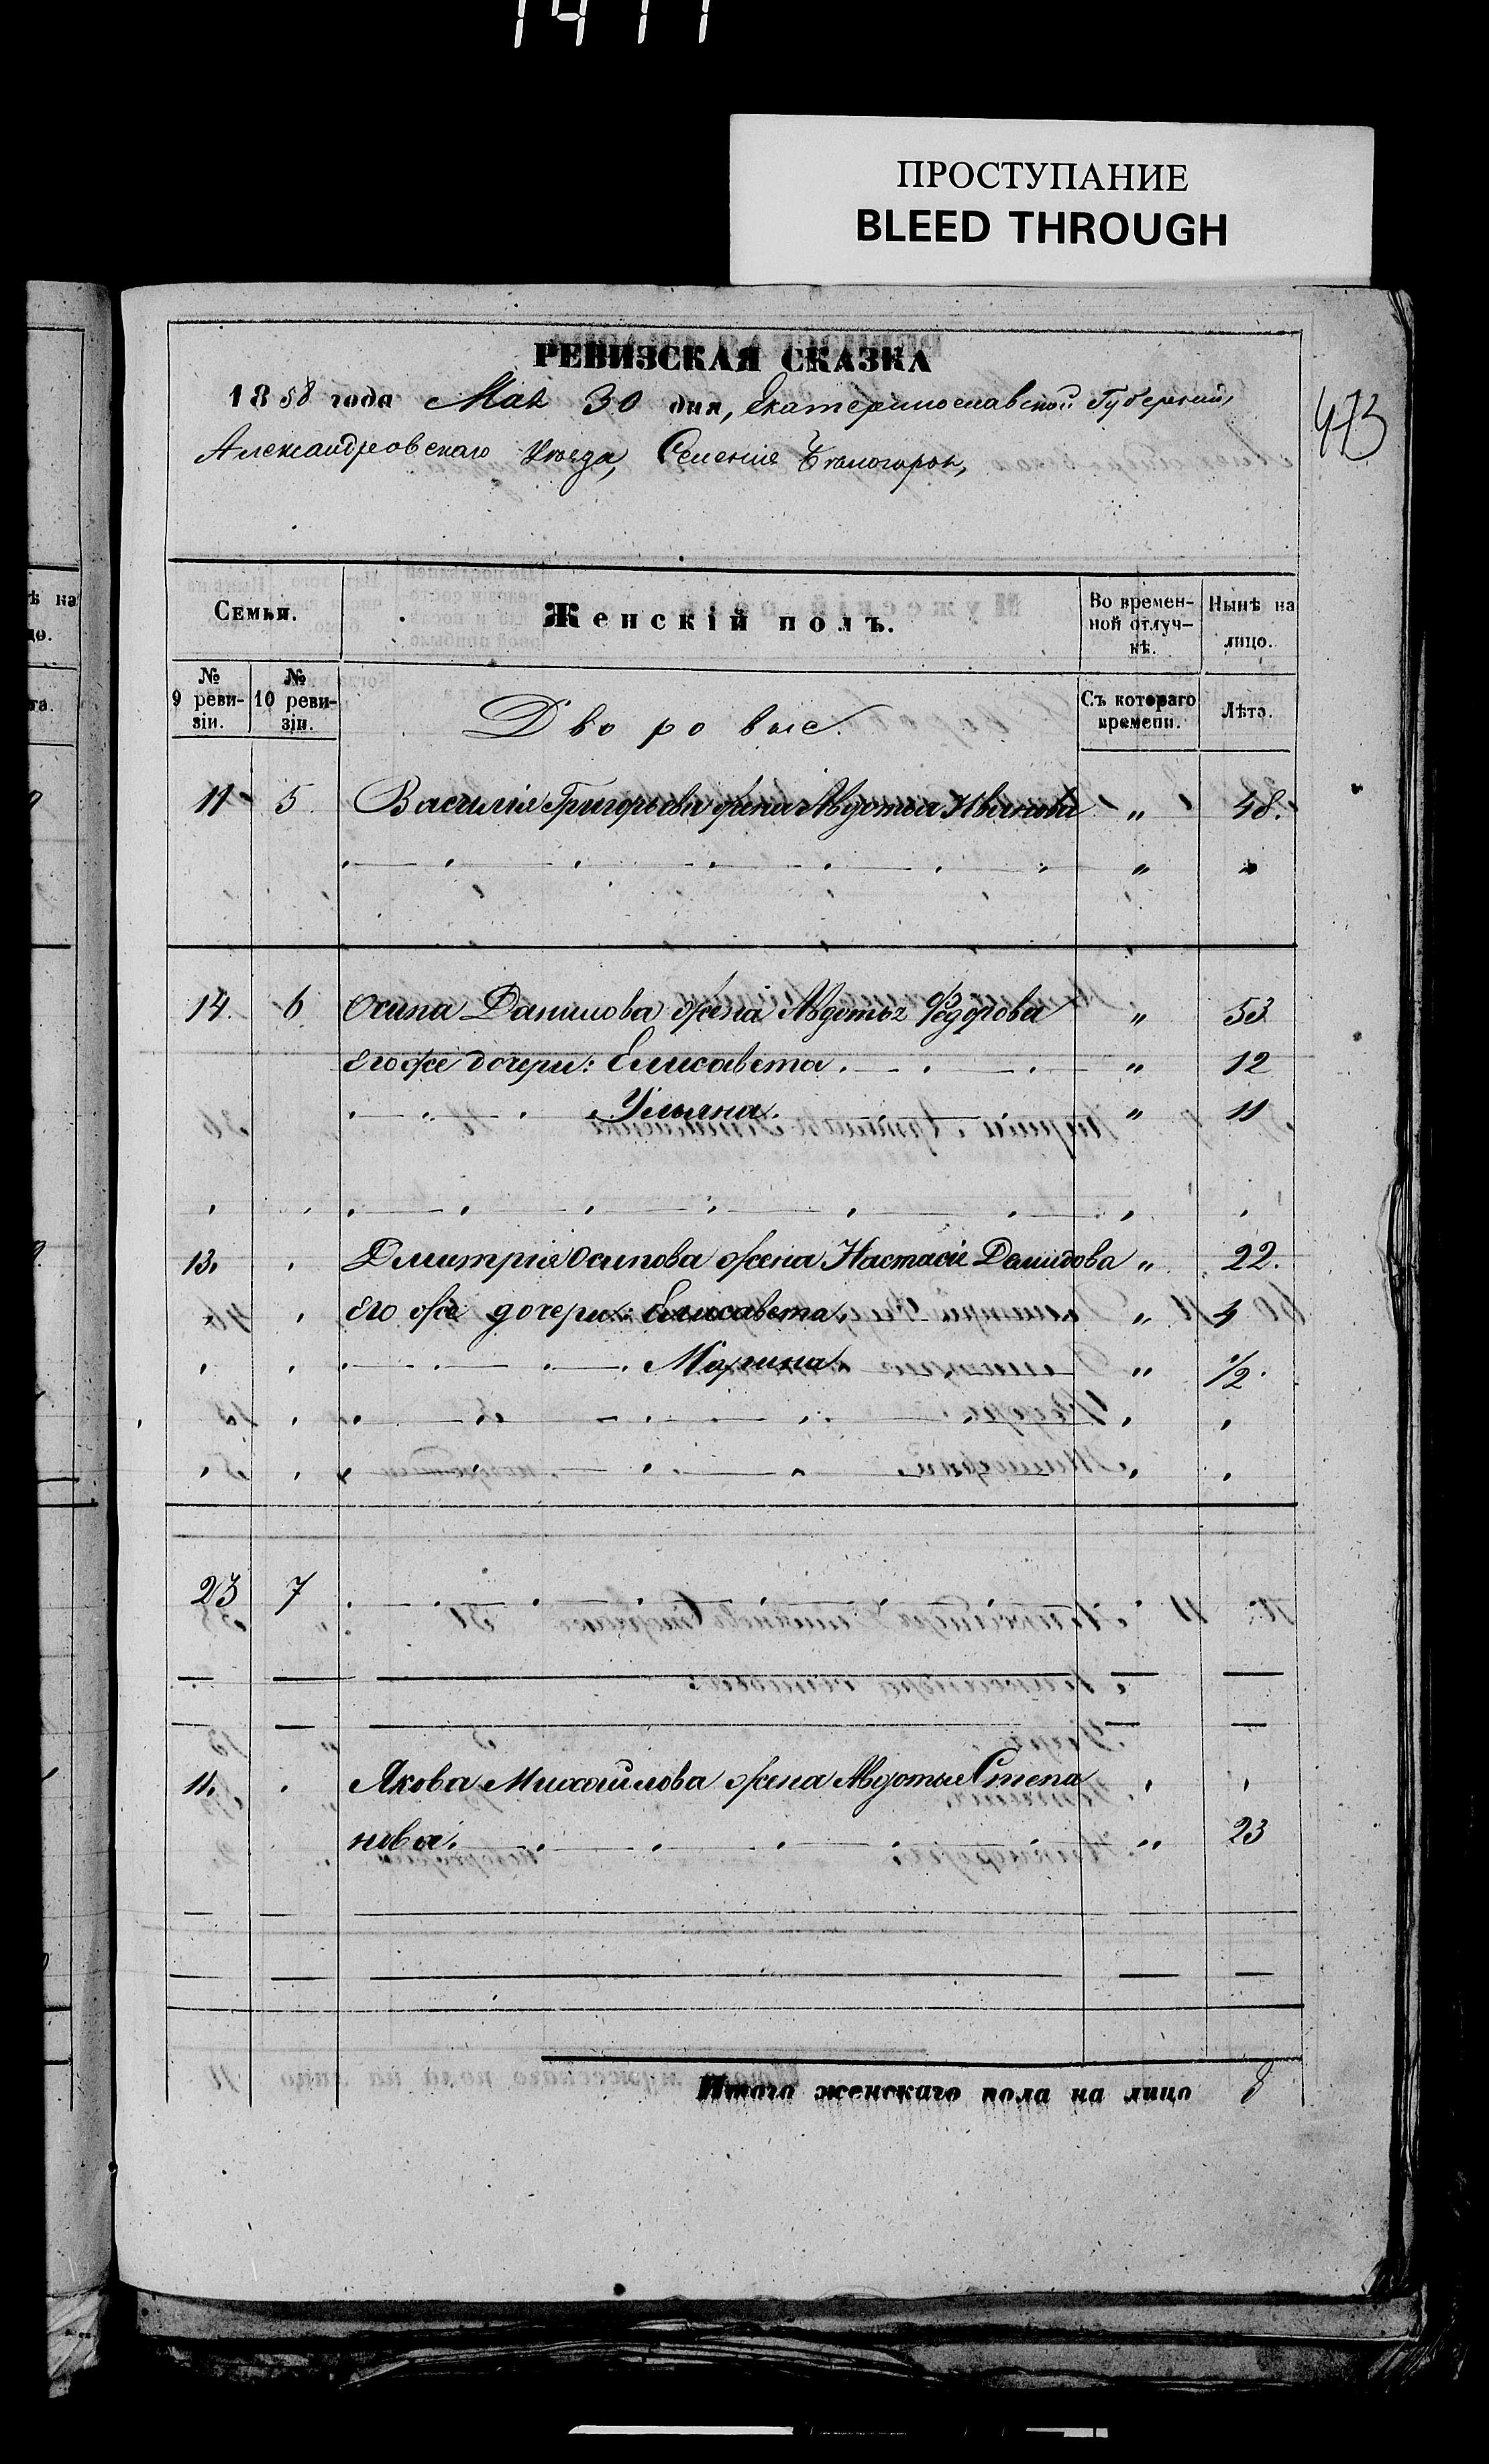 ПРОСТУПАНИЕ
BLEED THROUGH
РЕВИЗСКАЯ СКАЗКА
1858 года Мая 30 дня, Екатеринославской Губерніи,
473
Александровскаго Уѣзда, Селенія Бѣлогорья,
Семьи.
Женскій полъ.
Во времен-
ной отлуч-
кѣ.
Нынѣ на
лицо.
№
9 реви-
зіи.
№
10 реви-
зіи.
Съ котораго
времени.
Лѣта.
Дворовые.
11 5 Василія Григорьева жена Авдотья Иванова " 48.
14. 6 Осипа Данилова жена Авдотья Федорова " 53
его же дочери: Елисавета " 12
Ульяна " 11
13. Дмитрія Осипова жена Настасія Демидова " 22.
Его же дочери: Елисавета " 4
Марина " 1/2
23 7
11. Якова Михайлова жена Авдотья Степа
нова. " 23
Итого женскаго пола на лицо 8